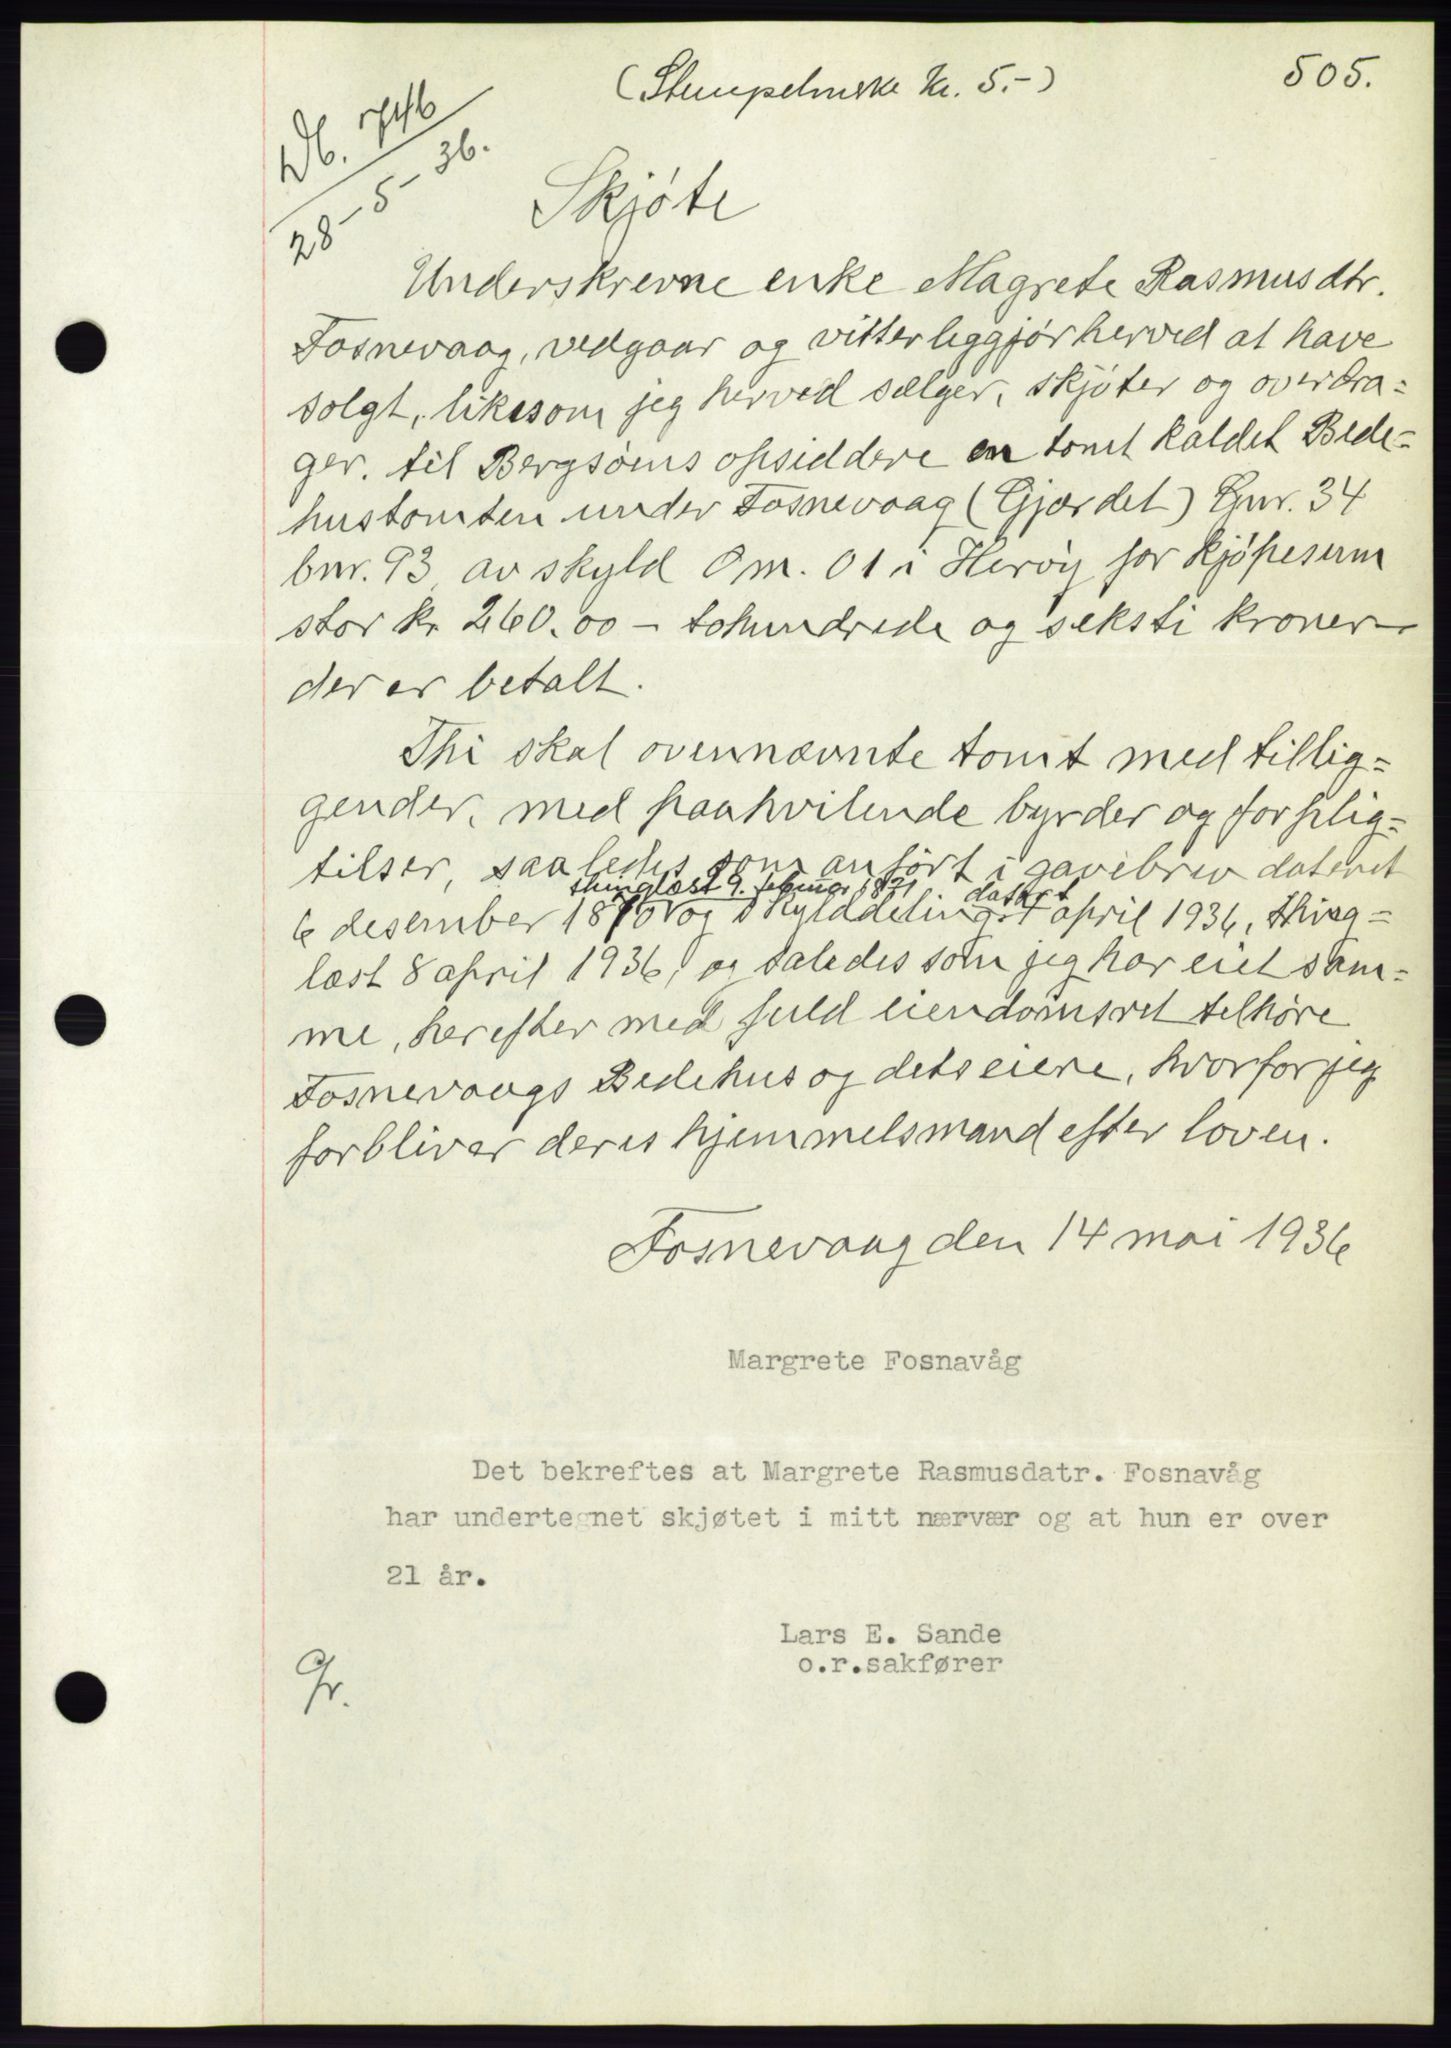 (Stempelmerke kr. 5.-)
505.
Db. 746
28-5-36.
Skjøte
Underskrevne enke Magrete Rasmusdtr.
Fosnevaag, vedgaar og vitterliggjør herved at have
solgt, likesom jeg herved sælger, skjøter og overdra=
ger. til Bergsøens opsiddere en tomt kaldet Bede=
hustomten under Fosnevaag (Gjærdet) Gnr. 34
bnr. 93 av skyld 0 m. 01 i Herøy for kjøpesum
stor kr 260.00 - tohundrede og seksti kroner -
der er betalt.
Thi skal ovennævnte tomt med tillig=
gender, med paahvilende byrder og forplig=
tilser, saaledes som anført i gavebrev dateret
thinglæst 9. februar 1871 datert
6 desember 1870 og skylddeling 4 april 1936, thing=
læst 8 april 1936, og saledes som jeg har eiet sam=
me, herefter med fuld eiendomsret telhøre
Fosnevaags Bedehus og dets eiere, hvorfor jeg
forbliver deres hjemmelsmand efter loven.
Fosnevaag den 14 mai 1936
Margrete Fosnavåg
Det bekreftes at Margrete Rasmusdatr. Fosnavåg
har undertegnet skjøtet i mitt nærvær og at hun er over
21 år.
Lars E. Sande
o.r.sakfører
Gr.